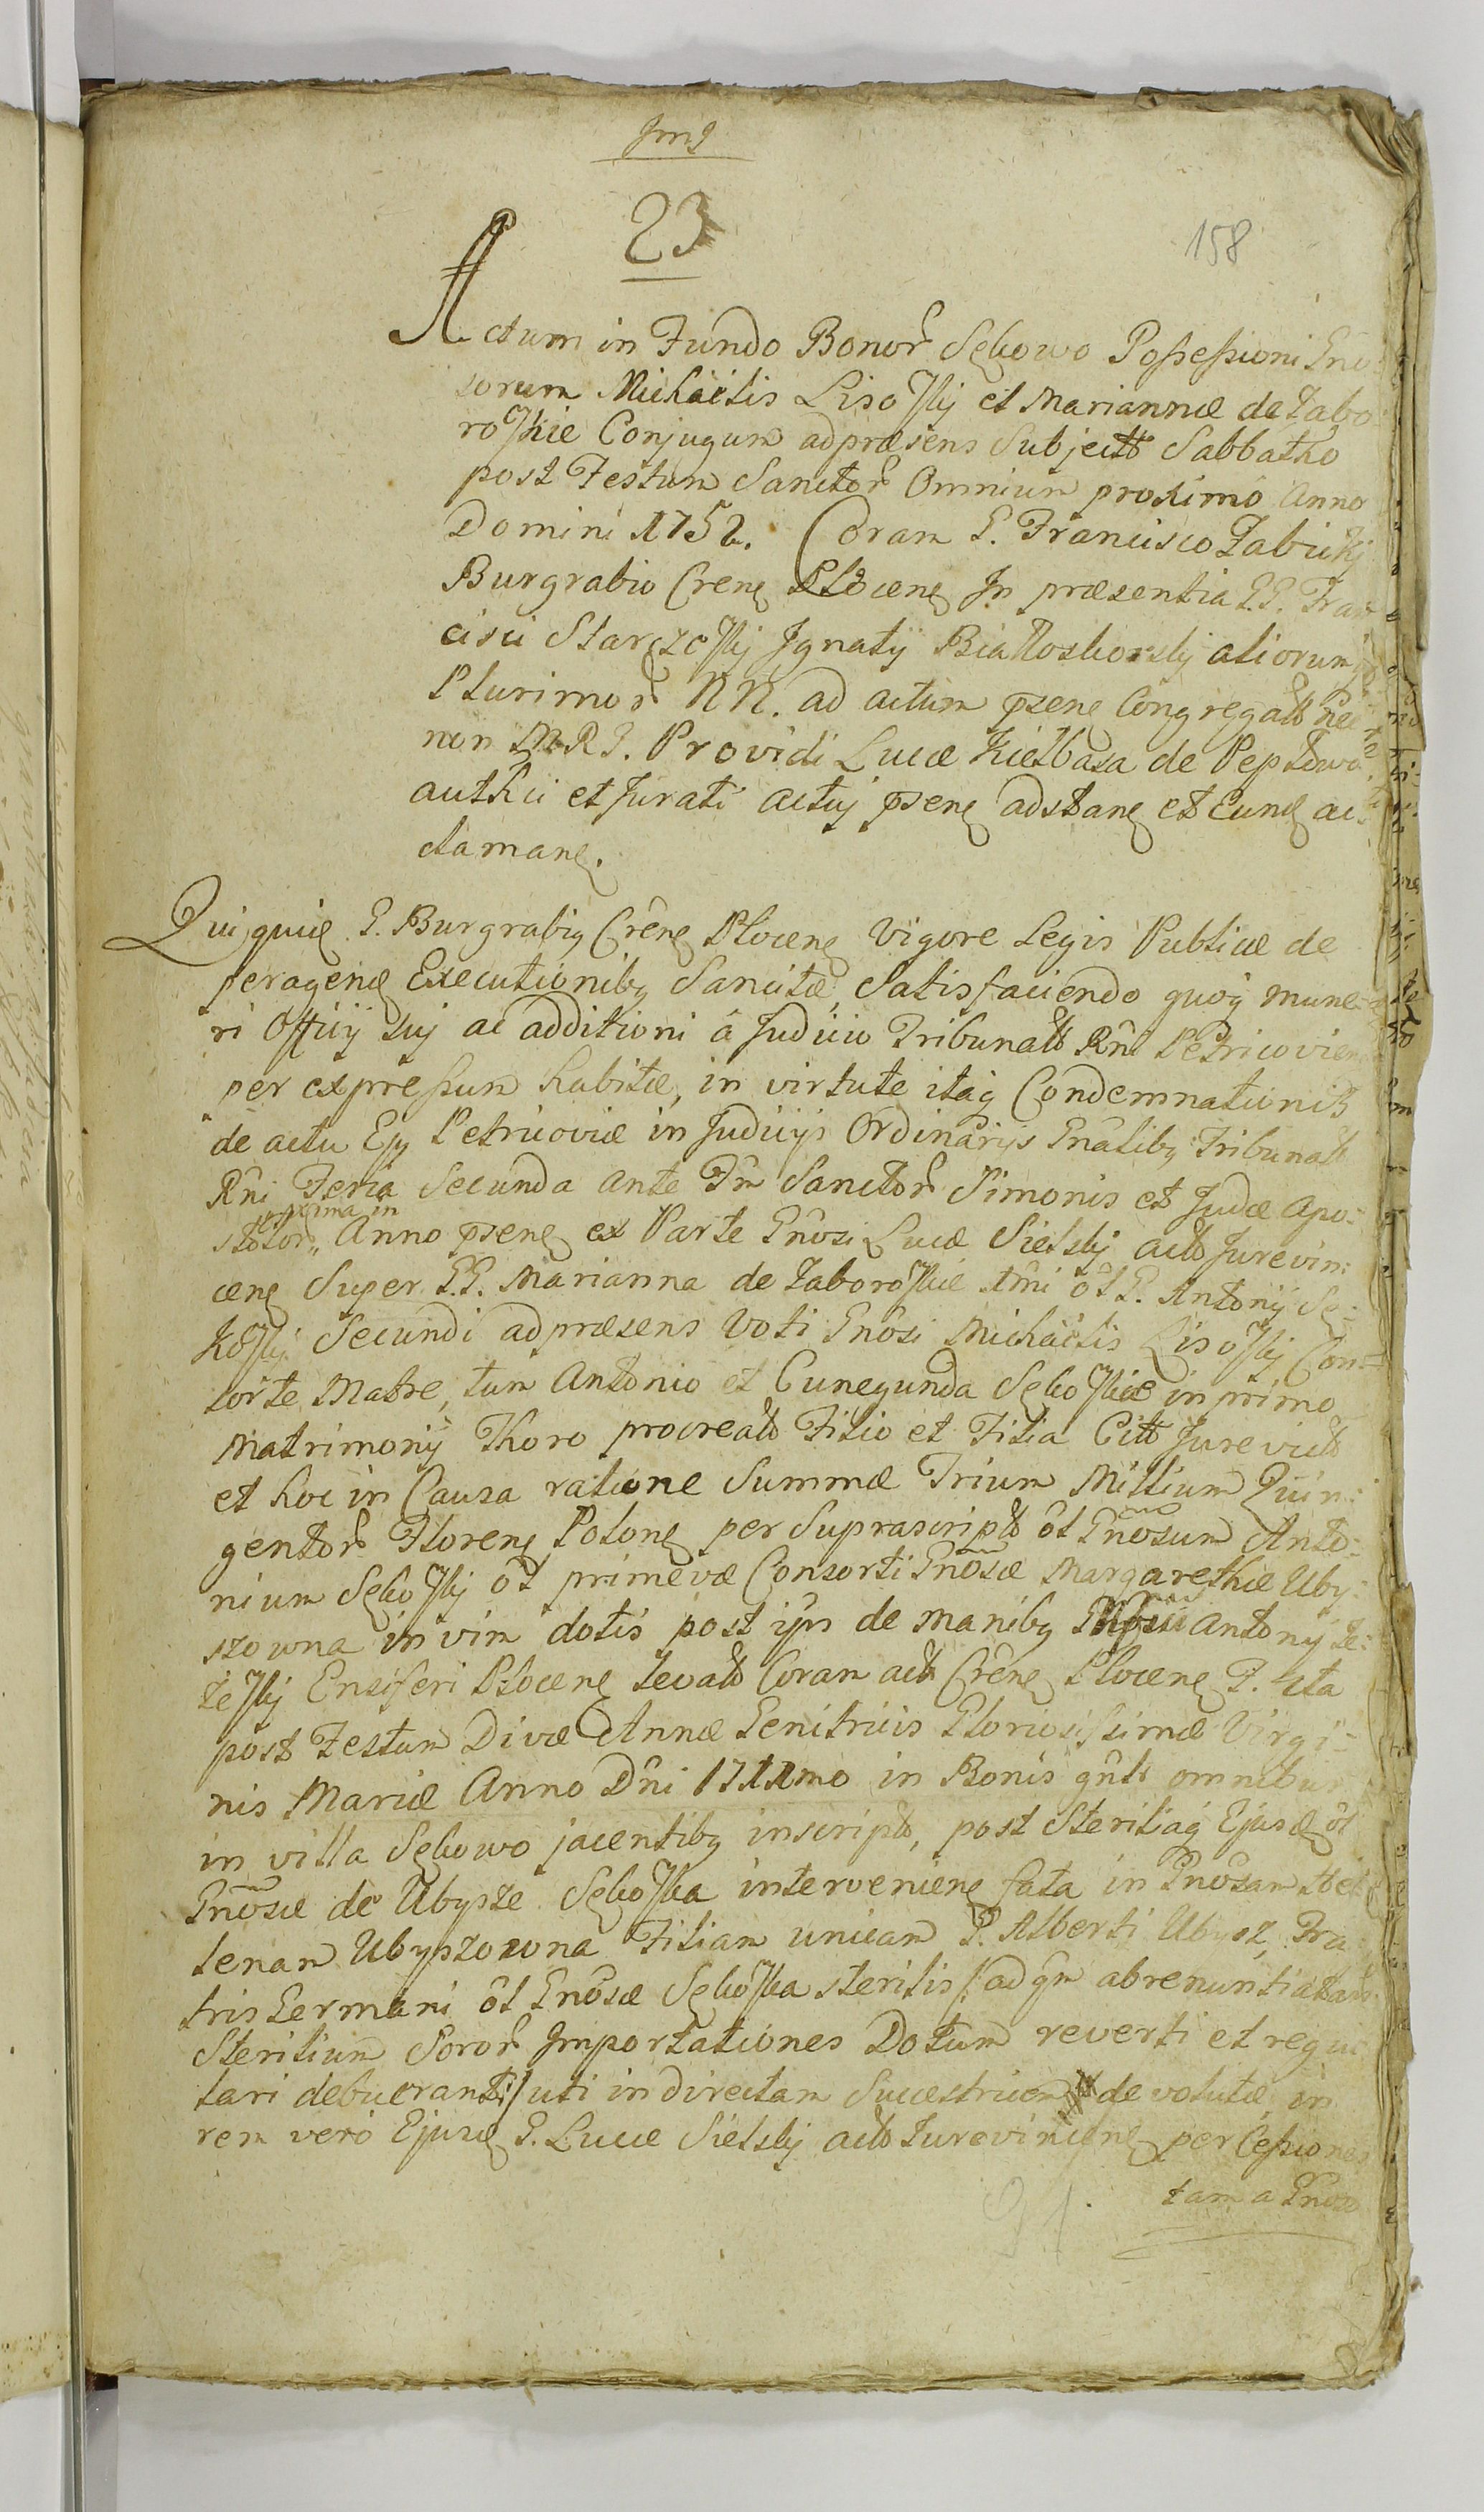 Jmj
23
158
Actum in Fundo Bonor Sękowo Possessioni Gno:
sorum Michaelis Lisoskj et Mariannæ de Zabo:
roskie Conjugum ad præsens Subjectt Sabbatho
post Festum Sanctor Omnium proximo Anno
Domini 1752. Coram G. Francisco Zabickj
Burgrabio Crenę Płocenę Jn præsentia GG. Fran
cisci Starczeskj Jgnatij Białloskorskj aliorumq
Plurimor NN. ad actum psenę Congregatt Nec
non MRJ. Providi Lucæ Kiełbasa de Peptowo
authci et Jurati actuj psenę adstanę et Eundę ac:
clamanę.
Qui quidę G. Burgrabiq Crênę Płocenę Vigore Legis Publicæ de
peragendę Executionibq Sancitæ, Satisfaciendo quoq mune:
ri Officij Suj ac additioni â Judicio Tribunatt Rnî Petricovien
per expressum habitæ, in virtute itaq Condemnationis
de actu Ejq Petricoviæ in Judicijs Ordinarijs Gnâlibq Tribunatt
Rñi Feria Secunda ante Fm Sanctor Simonis et Judæ Apo:
proxima in
stolor,, Anno psenę ex Parte Gnôsi Lucæ Sielskj actt Jurevin:
cenę Super GG. Marianna de Zaboroskie 1mi ôl G. Antonij Sę:
koskj Secundi ad præsens Voti Gnôsi Michaëlis Lisoskj Con:
sorte Matre, tum Antonio et Cunegunda Sękoskie in primo
Matrimonij Thoro procreatt Filio et Filia Citt Jurevictt
et hoc in Causa ratione Summæ Trium Millium Quin:
gentor Florenę Polonę per Suprascriptt ôl Gnôsum Anto:
nium Sękoskj ôl primevæ Consorti Gnôsæ Margarethæ Uby:
szowna in vim dotis post ips de manibq Antonij Ze:
leskj Ensiferi Płocenę levatt Coram actt Crênę Płocenę F. 4ta
post Festum Divæ Annæ Genitricis Gloriosissimæ Virgi:
nis Mariæ Anno Dñi 1711mo in Bonis gñlr omnibus
in villa Sękowo jacentibq inscriptt, post Sterilisq Ejusdę ôl
Gnôsæ de Ubysze Sękoska intervenienę fata in Gnôsam Hel
lenam Ubyszowna Filiam unicam G. Alberti Ubysz, Fra:
tris Germani ôl Gnôsæ Sękoska sterilis /:ad qm abrenuntiatt
Sterilium Soror Jmportationes Dotum reverti et regu
lari debuerant:/ uti in directam Sucestricem devolutæ, in
rem vero Ejusdę G. Lucæ Sielskj actt Jurevincenę per Cessiones
tam a Gnôso